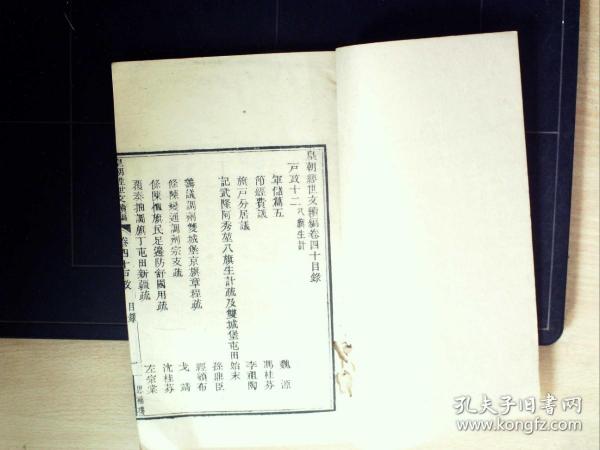 皇朝經世文續編卷四十目錄
戶政十二 八旗生計
軍儲篇五 魏源
節經費議 馮桂芬
旗戶分居議 李祖陶
記武隆阿秀堃八旗生計疏及雙城堡屯田始末 孫鼎臣
籌議調劑雙城堡京旗章程疏 經額布
條陳變通調劑宗支疏 戈靖
條陳恤旗民足邊防舒國用疏 沈桂芬
覆奏抽調旗丁屯田新疆疏 左宗棠
皇朝經世文續編 卷四十戶政 目錄 思補樓
孔夫子旧书网
www.kongfz.com